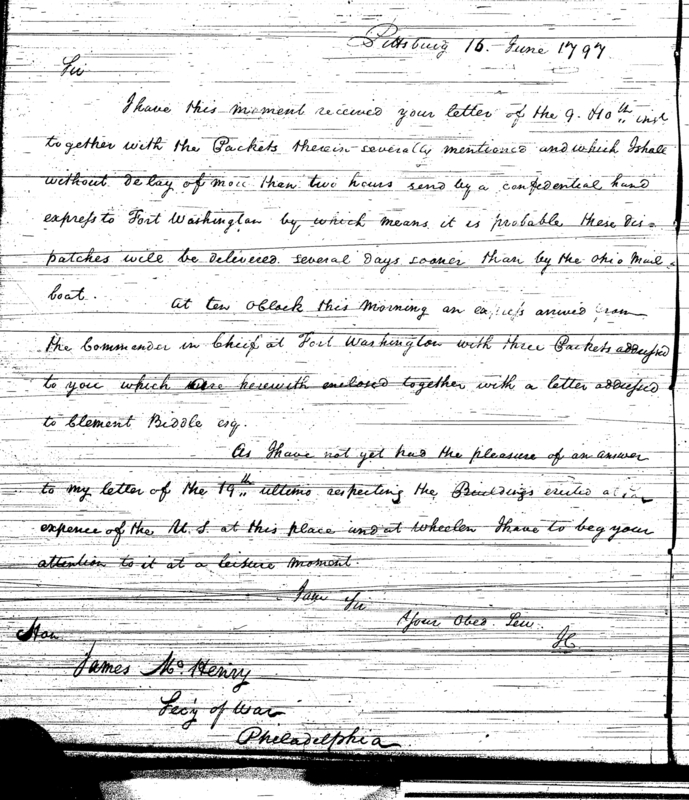 Pittsburg 16. June 1797
Sir
I have this moment received your letter of the 9. &10th inst
together with the Packets therein severally mentioned and which I shall
without delay of more than two hours send by a confidential hand
express to Fort Washington by which means it is probable these dis=
patches will be delivered several days sooner than by the Ohio Mail=
boat. At ten oClock this morning an express arrived from
the Commander in Chief at Fort Washington with three Packets addressed
to you which are herewith enclosed together with a letter addressed
to Clement Biddle esq.
As I have not yet had the pleasure of an answer
to my letter of the 19th ultimo respecting the Buildings erected at
expence of the U. S. at this place and at Wheelen I have to beg your
attention to it at a leisure moment.
I am Sir
Your Obed. Serv.
Hon
James McHenry
Secy of War
Philadelphia